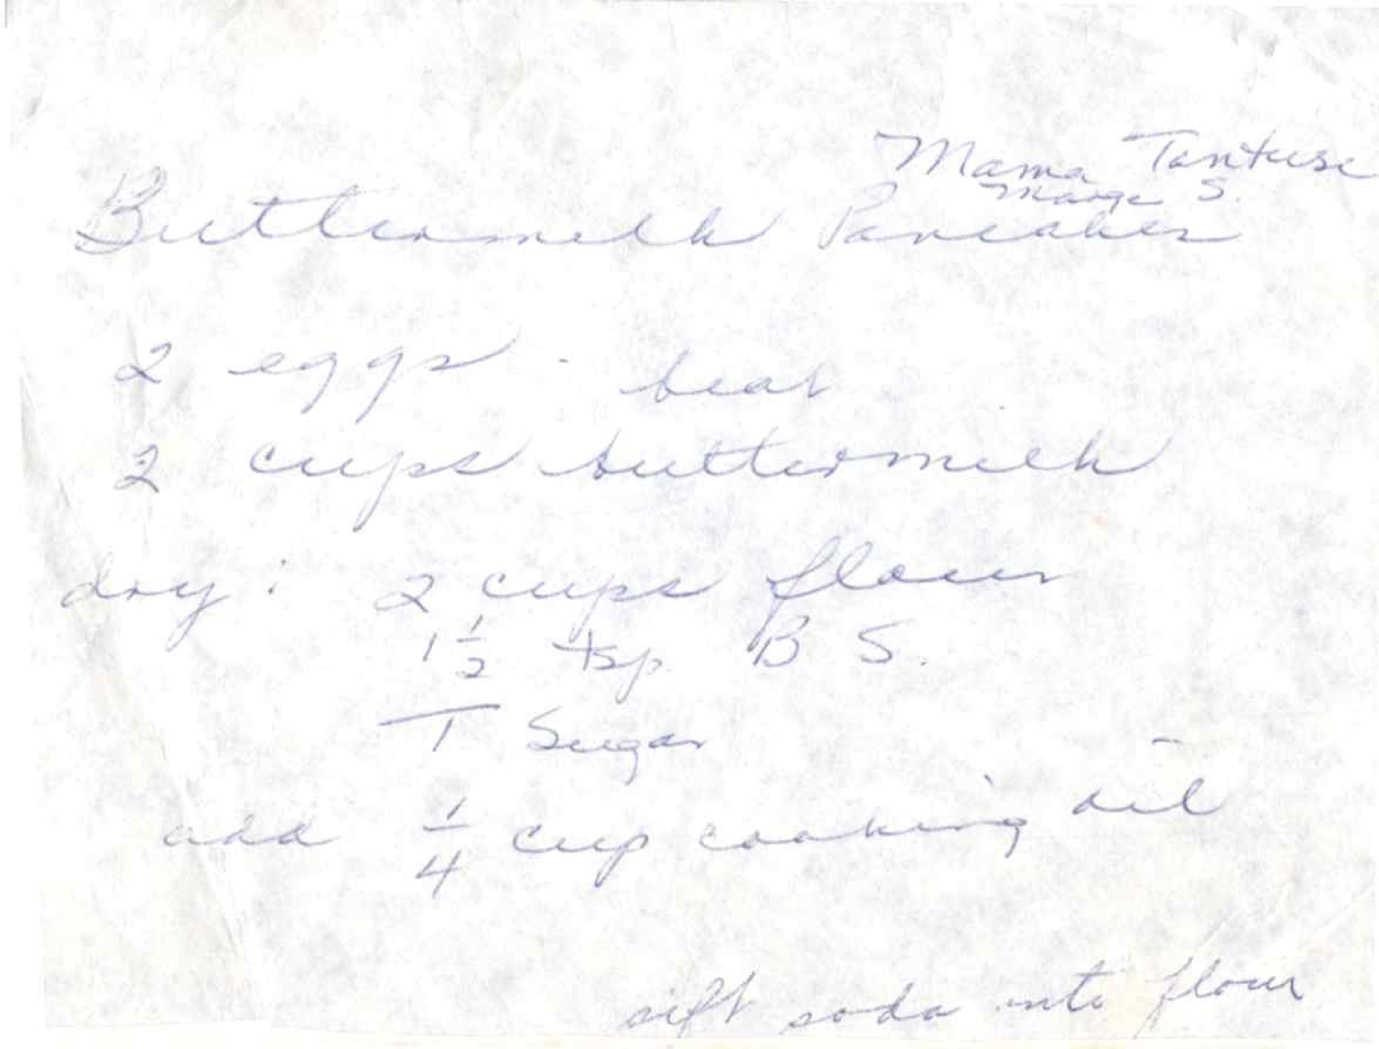 Mama
Marge S.
Buttermilk Pancakes
2 eggs - beat
2 cups buttermilk
dry: 2 cups flour
1 1/2 tsp. B S.
T Sugar
add 1/4 cup cooking oil
sift soda into flour